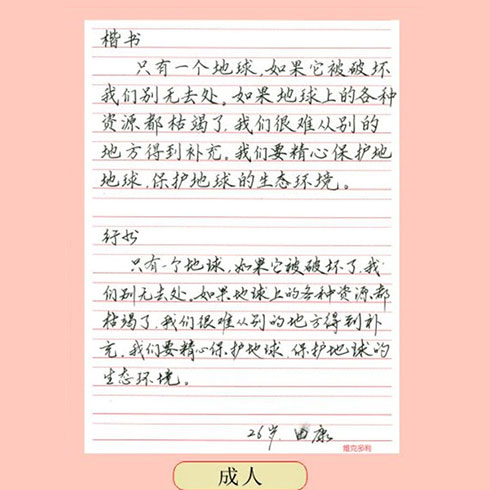 楷书
只有一个地球,如果它被破坏
我们别无去处。如果地球上的各种
资源都枯竭了,我们很难从别的
地方得到补充。我们要精心保护地
地球,保护地球的生态环境。
行书
只有一个地球,如果它被破坏了,我
们别无去处。如果地球上的各种资源都
枯竭了,我们很难从别的地方得到补
充。我们要精心保护地球,保护地球的
生态环境。
26岁 田康
增完多利
成人